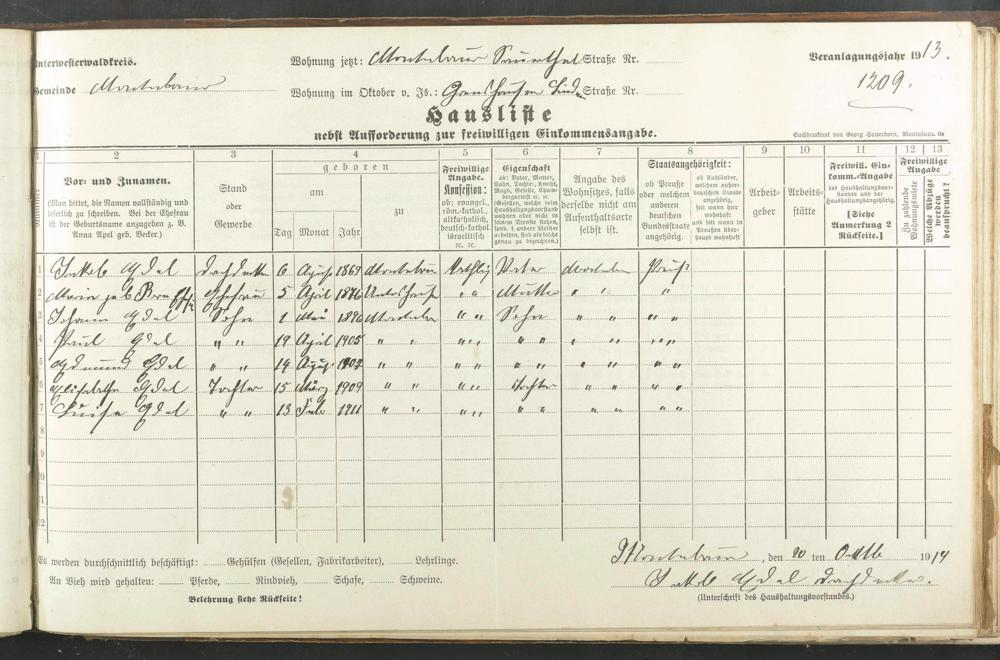 Unterwesterwaldkreis.
Wohnung jetzt: Montabaur Sauerthal Straße Nr.
Veranlagungsjahr 1913.
Gemeinde Montabaur
1209.
Wohnung im Oktober v. Js.: Straße Nr.
Hausliste
nebst Aufforderung zur freiwilligen Einkommensangabe.
Buchdruckerei von Georg Sauerborn, Montabaur.
1 2 3 4 5 6 7 8 9 10 11 12 13
Vor- und Zunamen.
(Man bittet, die Namen vollständig und
leserlich zu schreiben. Bei der Ehefrau
ist der Geburtsname anzugeben z. B.
Anna Apel geb. Becker.)
Stand
oder
Gewerbe
geboren
am
zu
Tag Monat Jahr
Freiwillige
Angabe.
Konfession:
ob: evangel.,
röm.-kathol.,
altkatholisch,
deutsch-kathol.
israelitisch
ec. ec.
Eigenschaft
ob: Vater, Mutter,
Sohn, Tochter, Knecht,
Magd, Geselle, Cham-
bergarnist ec. ec.
(Gesellen, welche beim
Haushaltungsvorstand
wohnen aber nicht in
seinem Dienste stehen,
sond. f. andere Meister
arbeiten, sind als solche
genau zu bezeichnen.)
Angabe des
Wohnsitzes, falls
derselbe nicht am
Aufenthaltsorte
selbst ist.
Staatsangehörigkeit:
ob Preuße
oder welchem
anderen
deutschen
Bundesstaate
angehörig.
ob Ausländer,
welchem außer-
deutschen Staate
angehörig,
seit wann hier
wohnhaft
und seit wann in
Preußen über-
haupt wohnhaft
Arbeit-
geber
Arbeits-
stätte
Freiwill. Ein-
komm.-Angabe
des Haushaltungsvor-
standes und der
Haushaltungsangehörig.
[Siehe
Anmerkung 2
Rückseite.]
Freiwillige
Angabe
Zu zahlende
Wohnungsmiete
Welche Abzüge
werden
beansprucht?
1 Jakob Edel Dachdecker 6 Aug. 1869 Montabaur Kathlig Vater Montabaur Preuß.
2 Maria geb. Ehefrau 5 April 1876 " " Mutter " " "
3 Johann Edel Sohn 1 Mai 1896 Montabaur " " Sohn " " " "
4 Paul Edel " " 19 April 1905 " " " " " " " " " "
5 Edmund Edel " " 14 Aug. 1907 " " " " " " " " " "
6 Elisabetha Edel Tochter 15 März 1909 " " " " Tochter " " " "
7 Luise Edel " " 13 Feb 1911 " " " " " " " " " "
8
9
10
11
12
Es werden durchschnittlich beschäftigt: Gehülfen (Gesellen, Fabrikarbeiter), Lehrlinge.
Montabaur, den 20 ten Oktb 1914
An Vieh wird gehalten: Pferde, Rindvieh, Schafe, Schweine.
Jakob Edel Dachdecker.
Belehrung siehe Rückseite!
(Unterschrift des Haushaltungsvorstandes.)